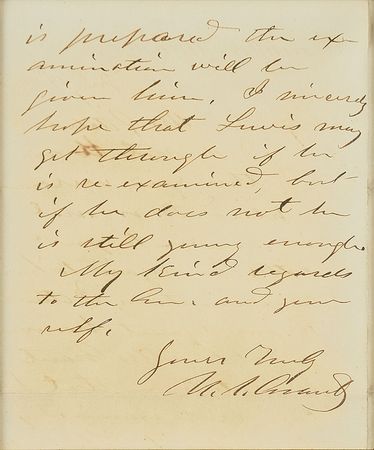 is prepared the ex-
amination will be
given him. I sincerely
hope that Lewis may
get through if he
is re-examined, but
if he does not he
is still young enough.
My kind regards
to the Gn. and your
self.
Yours Truly
U. S. Grant